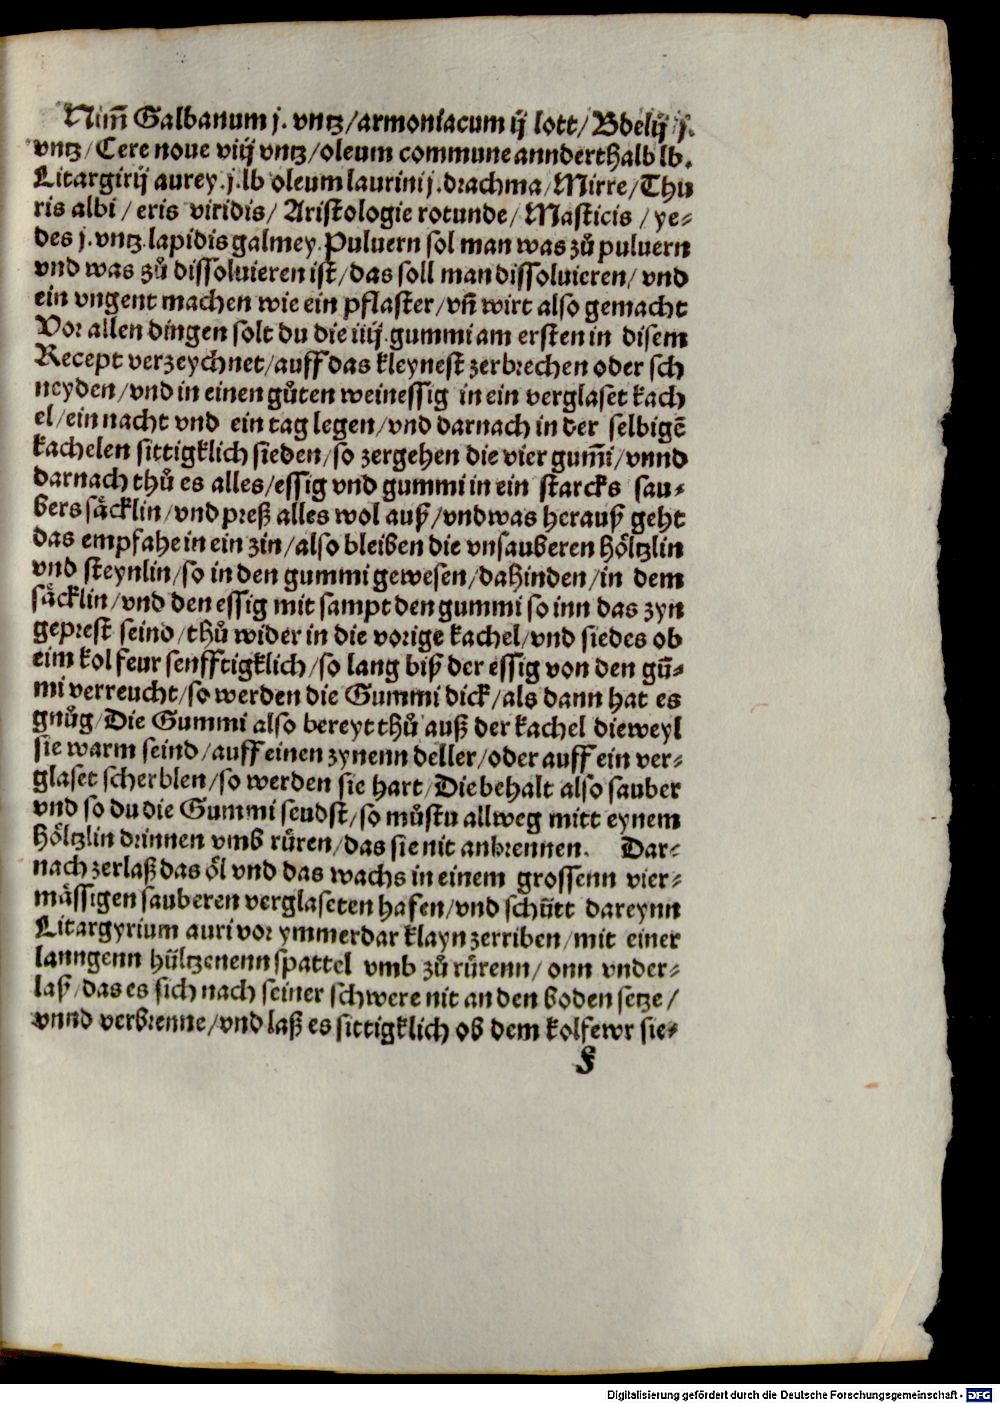 Nim̃ Galbanum j. vntz/armoniacum ij lott/Bdelij j.
vntz/Cere noue viij vntz/oleum commune annderthalb lb.
Litargirij aurey.j.lb oleum laurini j.drachma/Mirre/Thu
ris albi/eris viridis/Aristologie rotunde/Masticis/ye-
des j.vntz.lapidis galmey.Puluern sol man was zů puluern
vnd was zů dissoluieren ist/das soll man dissoluieren/vnd
ein vngent machen wie ein pflaster/vñ wirt also gemacht
Vor allen dingen solt du die iiij.gummi am ersten in disem
Recept verzeychnet/auff das kleynest zerbrechen oder sch
neyden/vnd in einen gůten weinessig in ein verglaset kach
el/ein nacht vnd ein tag legen/vnd darnach in der selbigẽ
kachelen sittigklich sieden/so zergehen die vier gum̃i/vnnd
darnach thů es alles/essig vnd gummi in ein starcks sau-
bers säcklin/vnd preß alles wol auß/vnd was herauß geht
das empfahe in ein zin/also bleiben die vnsauberen höltzlin
vnd steynlin/so in den gummi gewesen/dahinden/in dem
säcklin/vnd den essig mit sampt den gummi so inn das zyn
geprest seind/thů wider in die vorige kachel/vnd siedes ob
eim kolfeur senfftigklich/so lang biß der essig von den gũ-
mi verreucht/so werden die Gummi dick/als dann hat es
gnůg/Die Gummi also bereyt thů auß der kachel dieweyl
sie warm seind/auff einen zynenn deller/oder auff ein ver-
glaset scherblen/so werden sie hart/Die behalt also sauber
vnd so du die Gummi seudst/so můstu allweg mitt eynem
höltzlin drinnen vmb rüren/das sie nit anbrennen. Dar-
nach zerlaß das öl vnd das wachs in einem grossenn vier-
mässigen sauberen verglaseten hafen/vnd schütt dareynn
Litargyrium auri vor ymmerdar klayn zerriben/mit einer
lanngenn hültzenenn spattel vmb zů rürenn/onn vnder-
laß/das es sich nach seiner schwere nit an den boden setze/
vnnd verbrenne/vnd laß es sittigklich ob dem kolfewr sie-
f
Digitalisierung gefördert durch die Deutsche Forschungsgemeinschaft - DFG